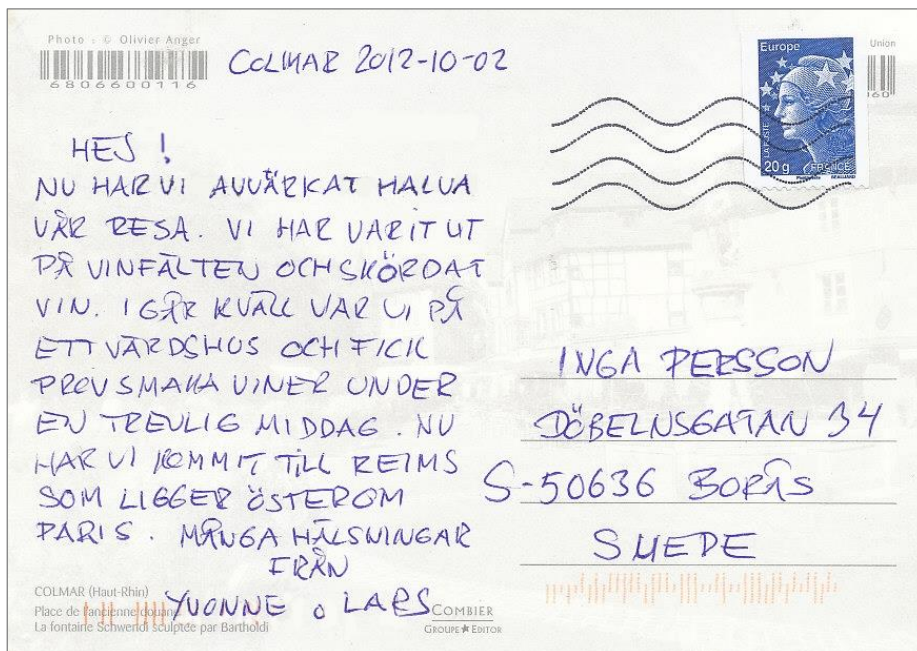 Photo : © Olivier Anger
6806600116
COLMAR 2012-10-02
Union
Europe
LA POSTE
20g
FRANCE
HEJ !
NU HAR VI AVVÄRKAT HALVA
VÅR RESA. VI HAR VARIT UT
PÅ VINFÄLTEN OCH SKÖRDAT
VIN. I GÅR KVÄLL VAR VI PÅ
ETT VÄRDSHUS OCH FICK
PROVSMAKA VINER UNDER
EN TREVLIG MIDDAG. NU
HAR VI KOMMIT TILL REIMS
SOM LIGGER ÖSTEROM
PARIS. MÅNGA HÄLSNINGAR
FRÅN
YVONNE o LARS
INGA PERSSON
DÖBELNSGATAN 34
S-50636 BORÅS
SUEDE
COLMAR (Haut-Rhin)
Place de l'ancienne douane
La fontaine Schwendi sculptée par Bartholdi
COMBIER
GROUPE ★ EDITOR